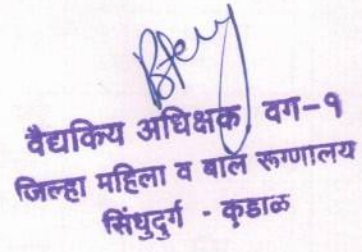 वैद्यकिय अधिक्षक वग-१
जिल्हा महिला व बाल रूग्णालय
सिंधुदुर्ग - कुडाळ